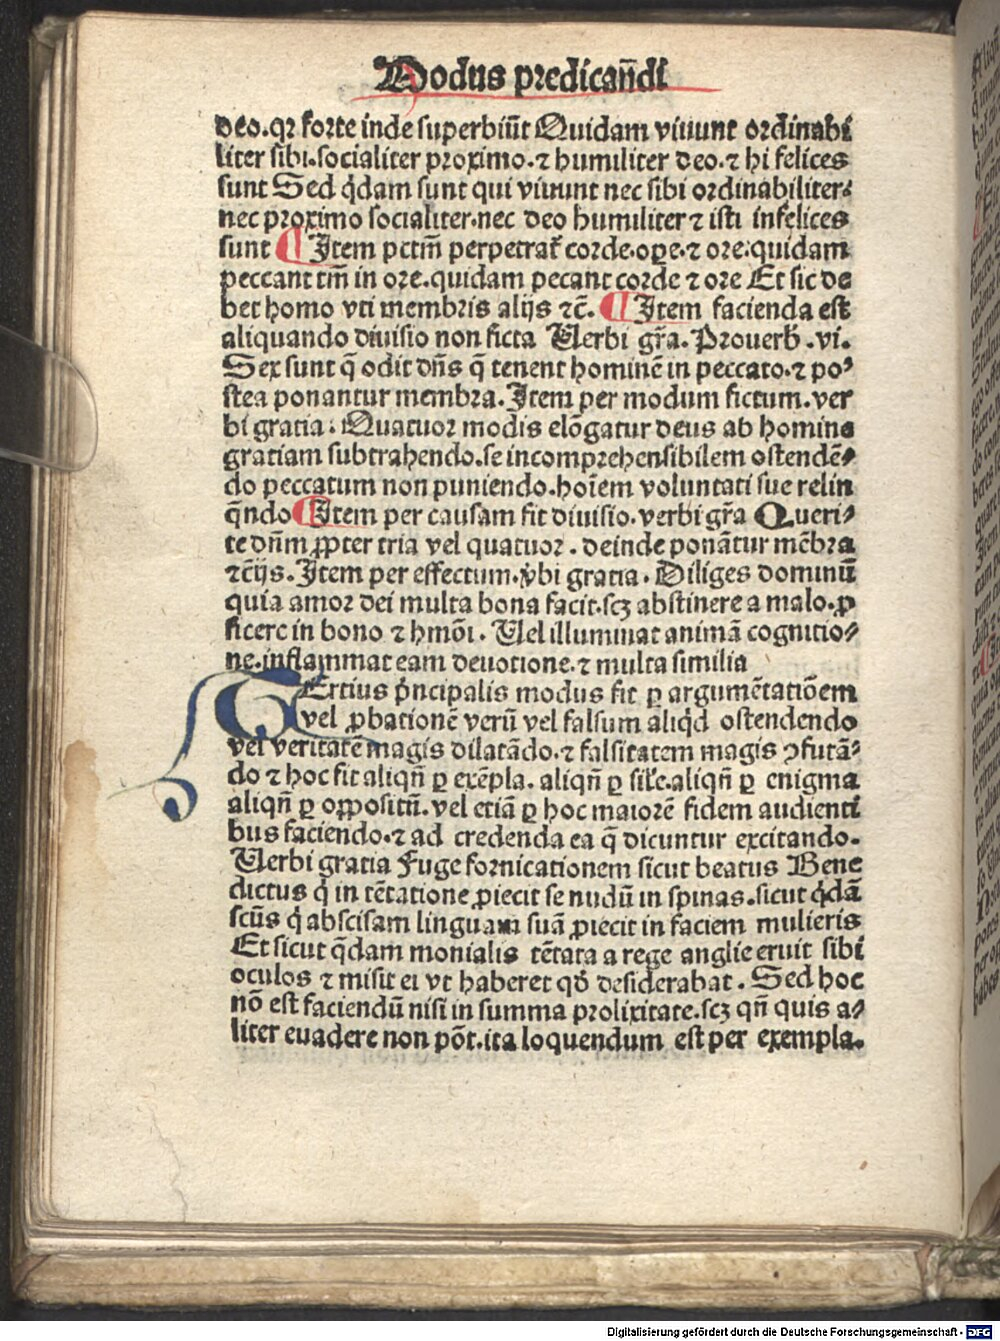 Modus predicañdi
deo.qꝛ forte inde superbiũt Quidam viuunt ordinabi
liter sibi.socialiter proximo.⁊ humiliter deo.⁊ hi felices
sunt Sed q̇dam sunt qui viuunt nec sibi ordinabiliter:
nec proximo socialiter.nec deo humiliter ⁊ isti infelices
sunt ¶ Item pctm̃ perpetrat̃ corde.oꝑe.⁊ ore:quidam
peccant tm̃ in ore.quidam pecant corde ⁊ ore Et sic de
bet homo vti membris alijs ⁊c̃. ¶ Item facienda est
aliquando diuisio non ficta Uerbi gr̃a. Prouerb̃.vi.
Sex sunt q̃ odit dñs q̃ tenent hominẽ in peccato.⁊ po⸗
stea ponantur membra.Item per modum fictum.ver
bi gratia: Quatuor modis elõgatur deus ab homine
gratiam subtrahendo.se incomprehensibilem ostendẽ⸗
do peccatum non puniendo.hoĩem voluntati sue relin
q̃ndo ¶ Item per causam fit diuisio.verbi gr̃a Queri⸗
te dñm ꝓpter tria vel quatuor. deinde ponãtur mẽbra
⁊c̃ijs.Item per effectum.v̇bi gratia. Diliges dominũ
quia amor dei multa bona facit.scꝫ abstinere a malo.ꝓ
ficere in bono ⁊ hmõi. Uel illuminat animã cognitio⸗
ne.inflammat eam deuotione.⁊ multa similia
TErtius pṙncipalis modus fit ꝑ argumẽtatiõem
vel ꝓbationẽ verũ vel falsum aliqd ostendendo
vel veritatẽ magis dilatãdo.⁊ falsitatem magis ꝯfutã⸗
do ⁊ hoc fit aliqñ ꝑ exẽpla. aliqñ ꝑ sil̃e.aliqñ ꝑ enigma
aliqñ ꝑ oꝓpositũ.vel etiã ꝑ hoc maiorẽ fidem audienti
bus faciendo.⁊ ad credenda ea q̃ dicuntur excitando.
Uerbi gratia Fuge fornicationem sicut beatus Bene
dictus q̇ in tẽtatione ꝓiecit se nudũ in spinas.sicut q̇dã
scũs q̇ abscisam linguam suã ꝓiecit in faciem mulieris
Et sicut q̃dam monialis tẽtata a rege anglie eruit sibi
oculos ⁊ misit ei vt haberet qđ desiderabat. Sed hoc
nõ est faciendũ nisi in summa prolixitate.scꝫ qñ quis a⸗
liter euadere non põt.ita loquendum est per exempla.
Digitalisierung gefördert durch die Deutsche Forschungsgemeinschaft - DFG